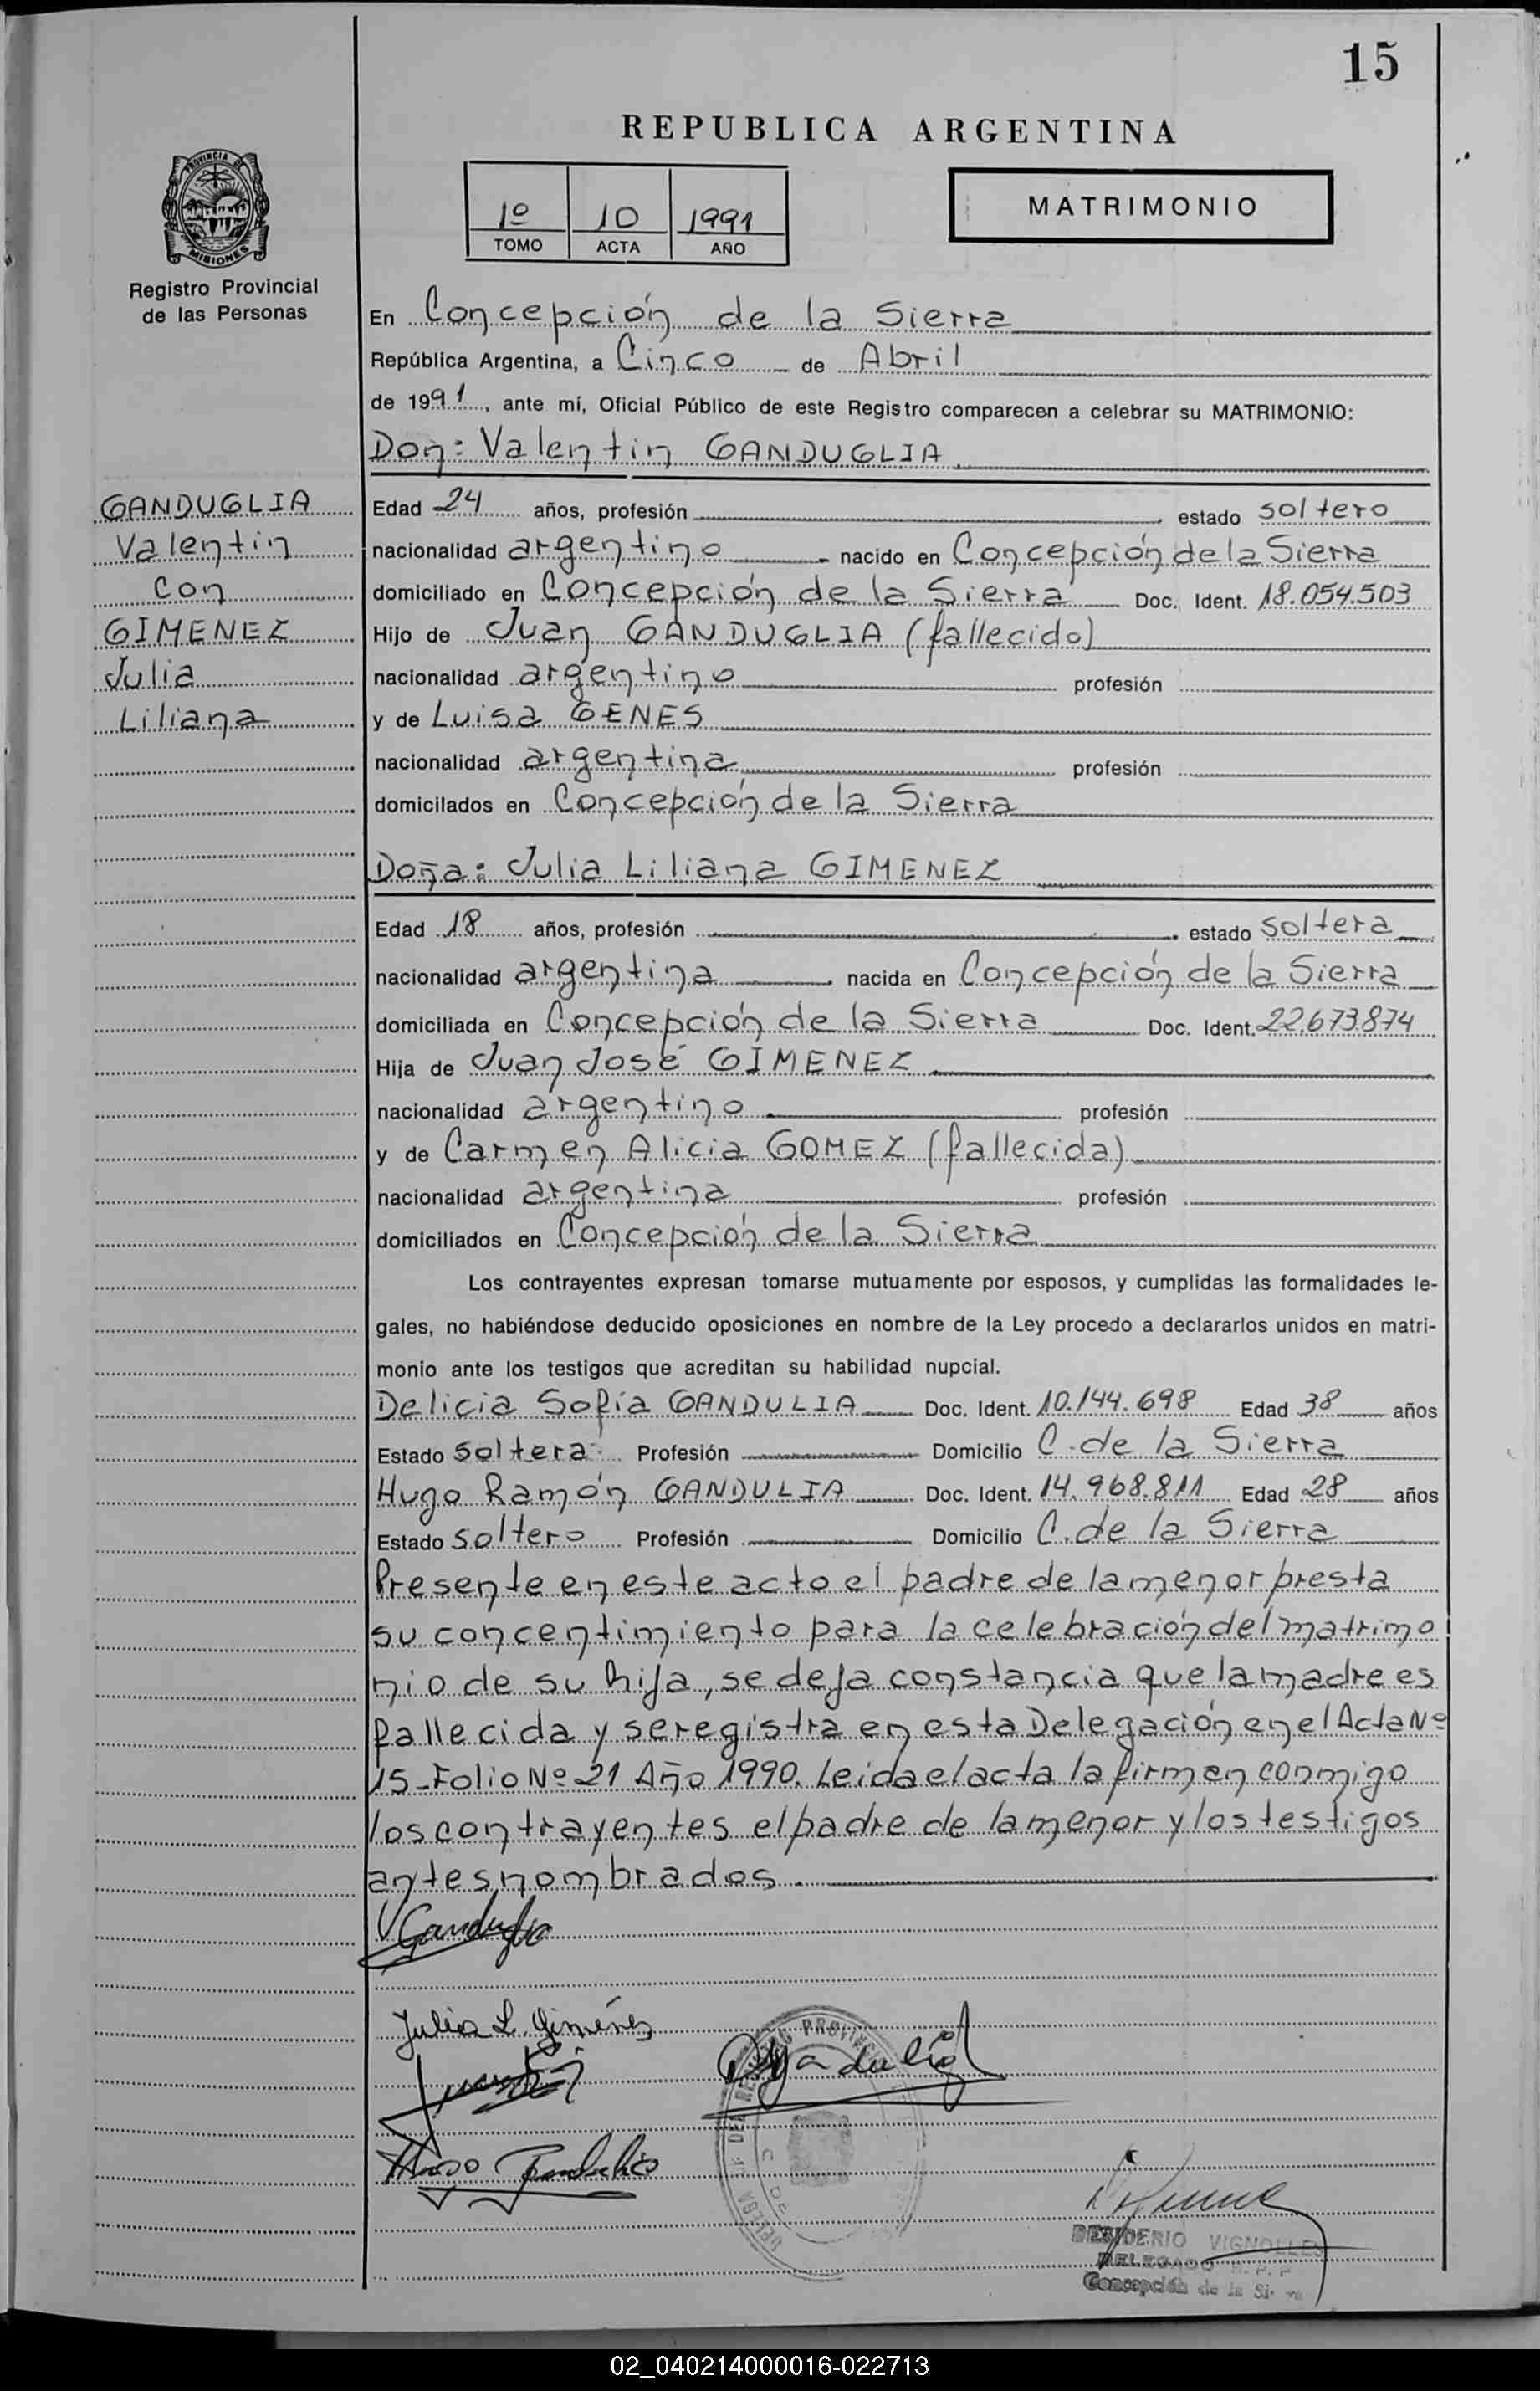 15
REPUBLICA ARGENTINA
1º 10 1991
TOMO ACTA AÑO
MATRIMONIO
PROVINCIA DE
MISIONES
Registro Provincial
de las Personas
En Concepción de la Sierra
República Argentina, a Cinco de Abril
de 1991, ante mí, Oficial Público de este Registro comparecen a celebrar su MATRIMONIO:
Don: Valentin GANDUGLIA
GANDUGLIA
Valentin
Con
GIMENEZ
Julia
Liliana
Edad 24 años, profesión estado soltero
nacionalidad argentino nacido en Concepción de la Sierra
domiciliado en Concepción de la Sierra Doc. Ident. 18.054.503
Hijo de Juan GANDUGLIA (fallecido)
nacionalidad argentino profesión
y de Luisa GENES
nacionalidad argentina profesión
domicilados en Concepción de la Sierra
Doña: Julia Liliana GIMENEZ
Edad 18 años, profesión estado soltera
nacionalidad argentina nacida en Concepción de la Sierra
domiciliada en Concepción de la Sierra Doc. Ident. 22.673.874
Hija de Juan José GIMENEZ
nacionalidad argentino profesión
y de Carmen Alicia GOMEZ (fallecida)
nacionalidad argentina profesión
domiciliados en Concepción de la Sierra
Los contrayentes expresan tomarse mutuamente por esposos, y cumplidas las formalidades le-
gales, no habiéndose deducido oposiciones en nombre de la Ley procedo a declararlos unidos en matri-
monio ante los testigos que acreditan su habilidad nupcial.
Delicia Sofía GANDULIA Doc. Ident. 10.144.698 Edad 38 años
Estado soltera Profesión Domicilio C. de la Sierra
Hugo Ramón GANDULIA Doc. Ident. 14.968.811 Edad 28 años
Estado soltero Profesión Domicilio C. de la Sierra
Presente en este acto el padre de la menor presta
su concentimiento para la celebración del matrimo
nio de su hija, se deja constancia que la madre es
fallecida y se registra en esta Delegación en el Acta Nº
15-Folio Nº 21 Año 1990. Leida el acta la firmen conmigo
los contrayentes el padre de la menor y los testigos
antes nombrados.
V Ganduglia
Julia L. Giménes
DESIDERIO VIGNOLLES
DELEGADO R. P. P.
Concepción de la Si
02_040214000016-022713